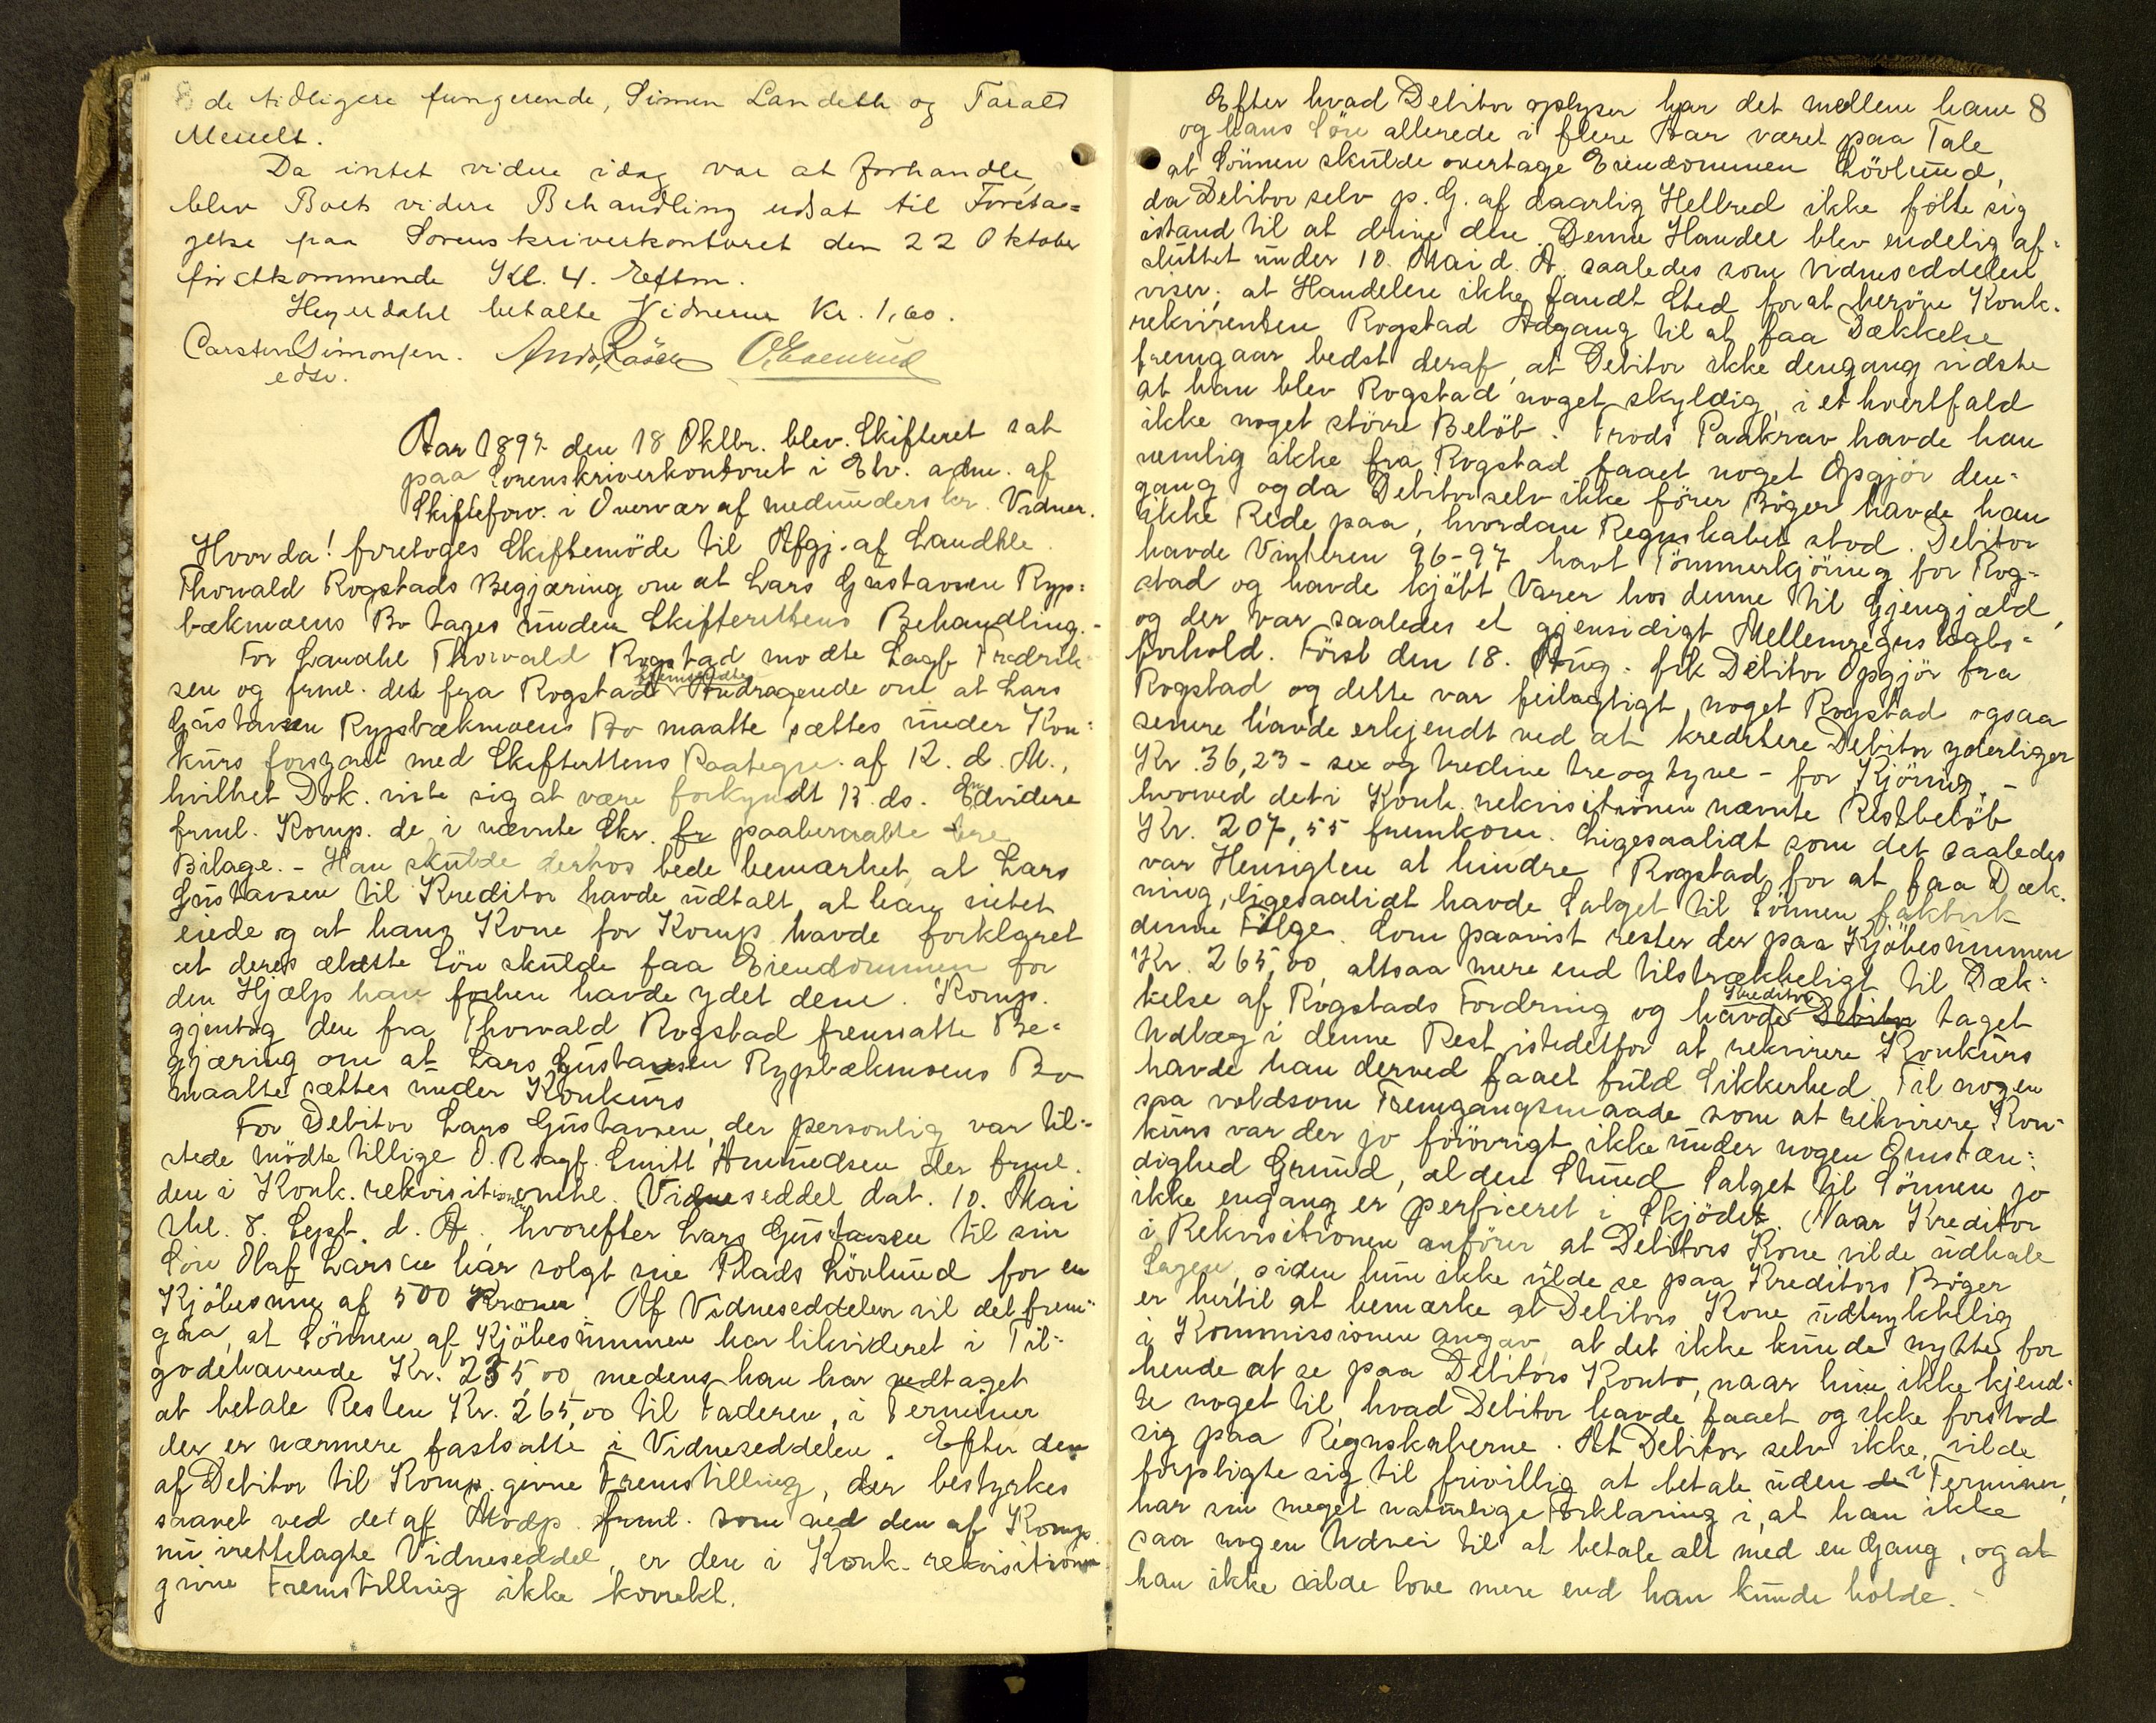 8 de tidligere fungerende, Simen Landeth og Tarald
Meselt.
Da intet videre idag var at forhandle,
blev Boets videre Behandling udsat til Foreta=
gelse paa Sorenskriverkontoret den 22 Oktober
førstkommende Kl. 4. Eftm.
Heyerdahl betalte Vidnerne Kr. 1,60.
Carsten Simonsen.
edsv.
Aar 1897 den 18 Oktbr. blev Skifteret sat
paa Sorenskriverkontoret i Elv. adm. af
Skifteforv. i Overvær af nedunderskr. Vidner.
Hvorda! foretoges Skiftemöde til Afgj. af Landhle
Thorvald Rogstads Begjæring om at Lars Gustavsen Ryp=
bækmoens Bo tages under Skifterettens Behandling. -
For Landhl Thorvald Rogstad mødte Sagf. Fredrik
sen og freml. det fra Rogstad fremsendte Andragende om at Lars
Gustavsen Rypsbækmoens Bo maatte sættes under Kon=
kurs forsynt med Skifterettens Paategn. af 12. d. M.,
hvilket Dok. viste sig at være forkyndt 13. ds. Endvidere
freml. Komp. de i nævnte Skr. fr paaberaabte tre
Bilage. - Han skulde derhos bede bemærket, at Lars
Gustavsen til Kreditor havde udtalt, at han intet
eiede og at hans Kone for Komp. havde forklaret
at deres ældste Sön skulde faa Eiendommen for
den Hjælp han forhen havde ydet dem. Komp.
gjentog den fra Thorvald Rogstad fremsatte Be=
gjæring om at Lars Gustavsen Rypbækmoens Bo
maatte sættes under Konkurs
For Debitor Lars Gustavsen, der personlig var til=
stede mödte tillige O. Rsagf. Smitt Amundsen der freml.
den i Konk. rekvisitionen omhl. Vidneseddel dat. 10. Mai
thl. 8. Sept. d. A., hvorefter Lars Gustavsen til sin
Sön Olaf Larsen har solgt sin Plads Lövlund for en
Kjöbesum af 500 Kroner. Af Vidneseddelen vil det frem=
gaa, at Sönnen af Kjöbesummen har likvideret i Til=
godehavende Kr. 235,00 medens han har vedtaget
at betale Resten Kr. 265,00 til Faderen, i Terminer
der er nærmere fastsatte i Vidneseddelen. Efter den
af Debitor til Komp. givne Fremstilling, der bestyrkes
saavel ved det af Modp. freml. som ved den af Komp.
nu irettelagte Vidneseddel, er den i Konk. rekvisitionen
givne Fremstilling ikke korrekt.
Efter hvad Debitor oplyser har det mellem ham 8
og hans Sön allerede i flere Aar været paa Tale
at Sönnen skulde overtage Eiendommen Lövlund,
da Debitor selv p. G. af daarlig Helbred ikke fölte sig
istand til at drive den. Denne Handel blev endelig af=
sluttet under 10. Mai d. A. saaledes som Vidneseddelen
viser; at Handelen ikke fandt Sted for at beröve Konk.
rekvirenten Rogstad Adgang til at faa Dækkelse
fremgaar bedst deraf, at Debitor ikke dengang vidste
at han blev Rogstad noget skyldig, i et hvertfald
ikke noget större Belöb. Trods Paakrav havde han
nemlig ikke fra Rogstad faaet noget Opgjör den=
gang og da Debitor selv ikke förer Böger havde han
ikke Rede paa, hvordan Regnskabet stod. Debitor
havde Vinteren 96-97 havt Tömmerkjöring for Rog=
stad og havde kjöbt Varer hos denne til Gjengjæld,
og der var saaledes et gjensidigt Mellemregnskabs=
forhold. Först den 18. Aug. fik Debitor Opgjör fra
Rogstad og dette var feilagtigt, noget Rogstad ogsaa
senere havde erkjendt ved at kreditere Debitor yderligere
Kr. 36,23 - sex og tredive tre og tyve - for Kjöring, -
hvorved det i Konk. rekvisitionen nævnte Restbelöb
Kr. 207,55 fremkom. Ligesaalidt som det saaledes
var Hensigten at hindre Rogstad for at faa Dæk=
ning, ligesaalidt havde Salget til Sönnen faktisk
denne Fölge. Som paavist rester der paa Kjöbesummen
Kr. 265,00, altsaa mere end tilstrækkeligt til Dæk=
kelse af Rogstads Fordring og havde Kreditor Debitor taget
Udlæg i denne Rest istedetfor at rekvirere Konkurs
havde han derved faaet fuld Sikkerhed. Til nogen
saa voldsom Fremgangsmaade som at rekvirere Kon=
kurs var der jo forövrigt ikke under nogen Omstæn=
dighed Grund, al den Stund Salget til Sönnen jo
ikke engang er perficeret i Skjödet. Naar Kreditor
i Rekvisitionen anförer at Debitors Kone vilde udhale
Sagen, siden hun ikke vilde se paa Kreditors Böger
er hertil at bemærke at Debitors Kone udtrykkelig
i Kommissionen angav, at det ikke kunde nytte for
hende at se paa Debitors Konto, naar hun ikke kjend=
te noget til, hvad Debitor havde faaet og ikke forstod
sig paa Regnskaberne. At Debitor selv ikke vilde
forpligte sig til frivillig at betale uden de i Terminer,
har sin meget naturlige Forklaring i, at han ikke
saa nogen Udvei til at betale alt med en Gang, og at
han ikke vilde love mere end han kunde holde. -